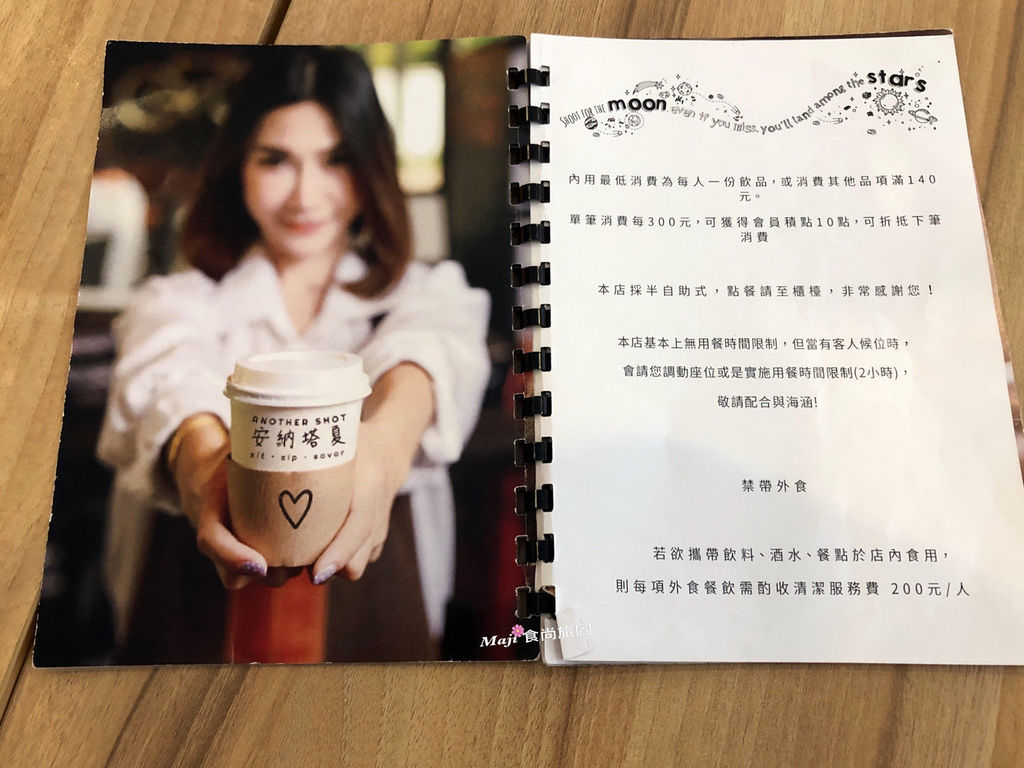 ANOTHER SHOT
安納塔夏
sit · sip · savor
Maji 食尚旅圖
SHOOT FOR THE moon even if you miss, you'll land among the stars
內用最低消費為每人一份飲品，或消費其他品項滿140
元。
單筆消費每300元，可獲得會員積點10點，可折抵下筆
消費
本店採半自助式，點餐請至櫃檯，非常感謝您！
本店基本上無用餐時間限制，但當有客人候位時，
會請您調動座位或是實施用餐時間限制(2小時)，
敬請配合與海涵!
禁帶外食
若欲攜帶飲料、酒水、餐點於店內食用，
則每項外食餐飲需酌收清潔服務費 200元/人